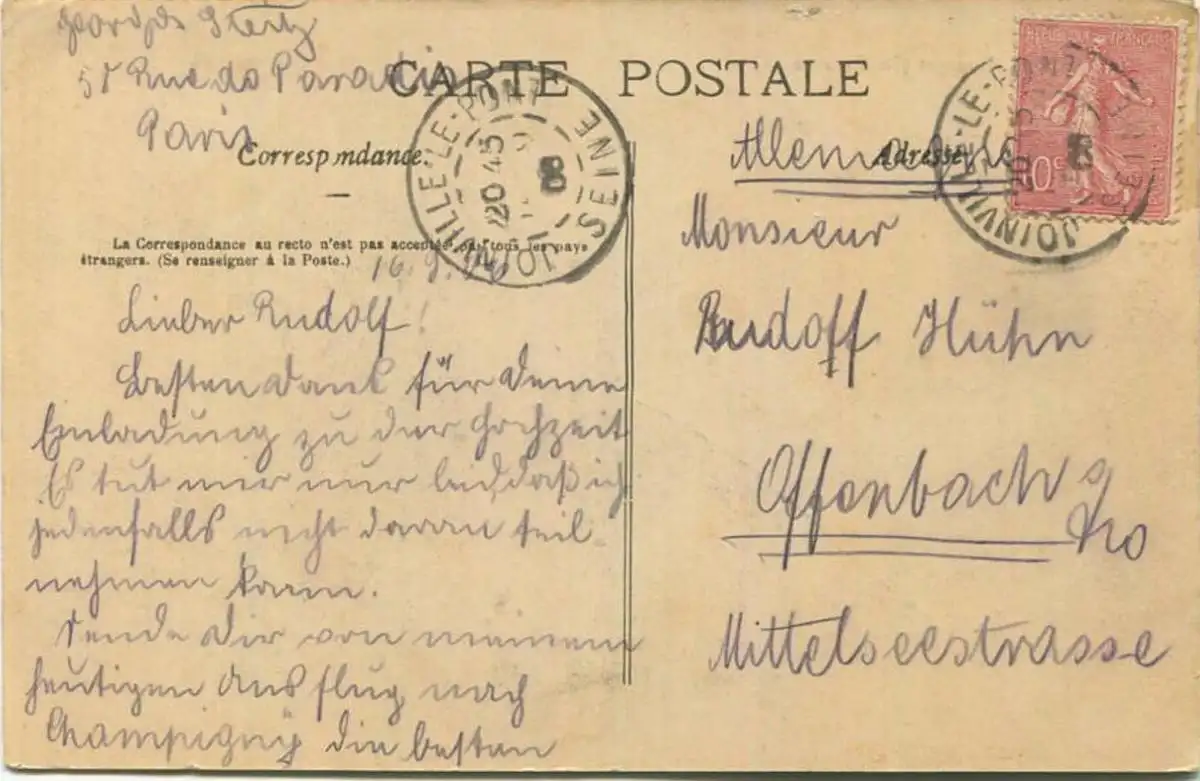 Georges Stertz
51 Rue de Paradis
Paris
CARTE POSTALE
Correspondance.
Adresse
La Correspondance au recto n'est pas acceptée par tous les pays
étrangers. (Se renseigner à la Poste.)
JOINVILLE-LE-PONT
SEINE
20 45
8
16. 8.
Lieber Rudolf!
Besten Dank für Deine
Einladung zu der Hochzeit
Es tut mir nur leid, daß ich
jedenfalls nicht daran teil-
nehmen kann.
Sende Dir von meinem
heutigen Ausflug nach
Champigny die besten
REPUBLIQUE FRANÇAISE
10c
JOINVILLE-LE-PONT
SEINE
20
8
Allemagne
Monsieur
Rudolf Hühn
Offenbach a/
Mittelseestrasse